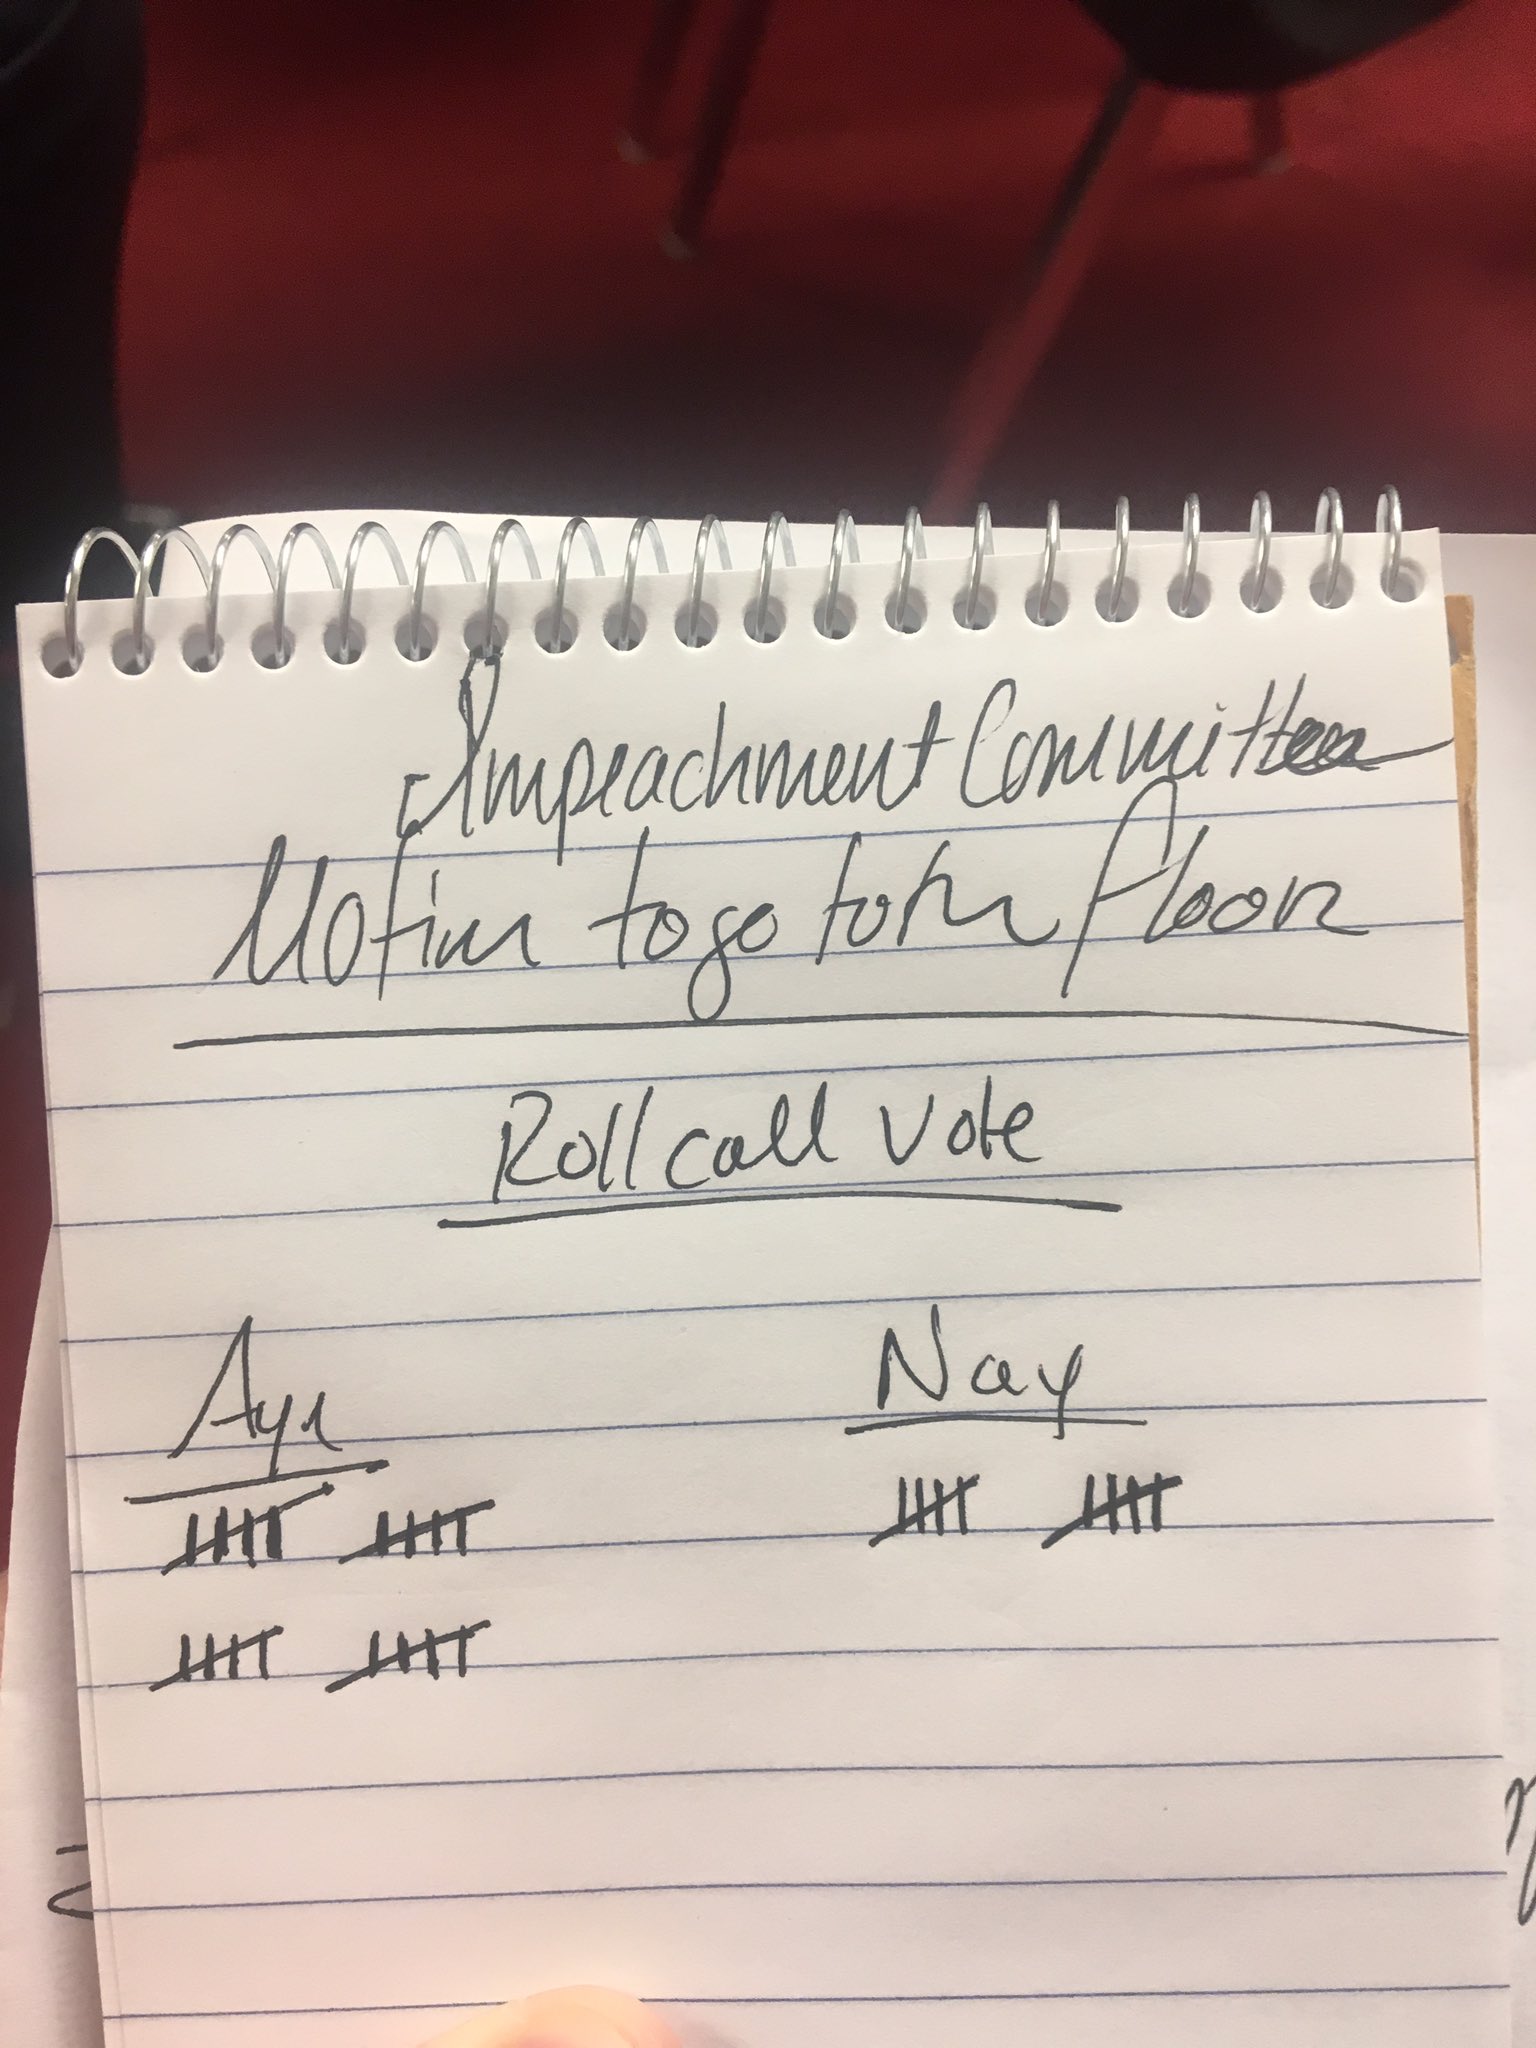 Impeachment Committee
Motion to go to the floor
Roll call vote
Aye Nay